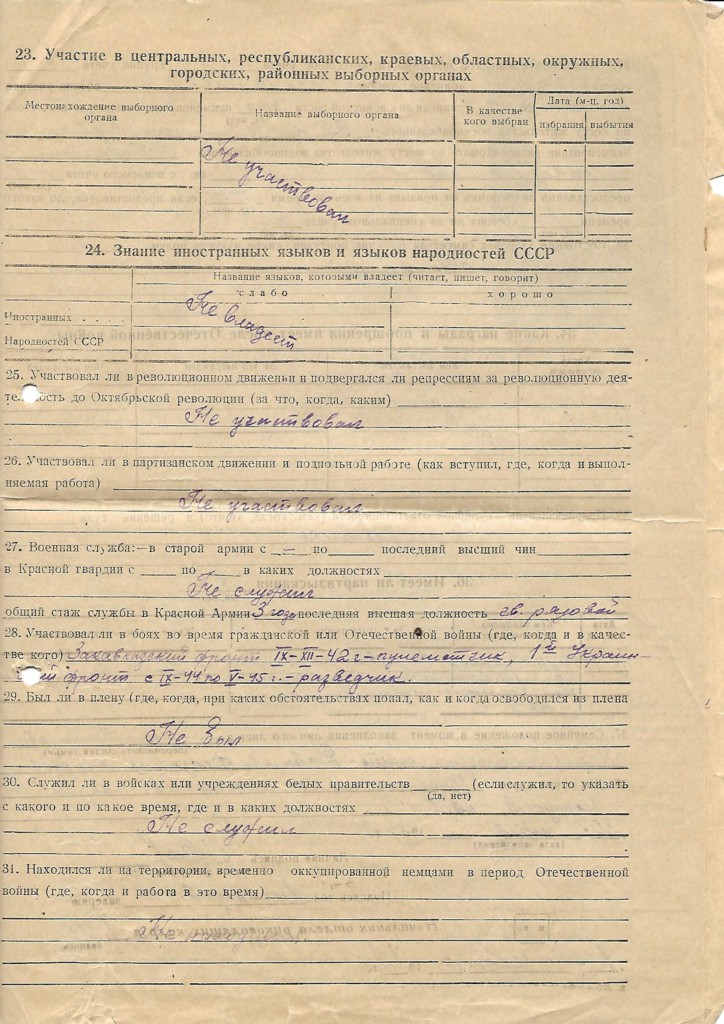 23. Участие в центральных, республиканских, краевых, областных, окружных,
городских, районных выборных органах
Местонахождение выборного органа
Название выборного органа
В качестве кого выбран
Дата (м-ц, год)
избрания
выбытия
Не участвовал
24. Знание иностранных языков и языков народностей СССР
Название языков, которыми владеет (читает, пишет, говорит)
слабо
хорошо
Иностранных . . . .
Не владеет
Народностей СССР
25. Участвовал ли в революционном движении и подвергался ли репрессиям за революционную дея-
те ость до Октябрьской революции (за что, когда, каким)
Не участвовал
26. Участвовал ли в партизанском движении и подпольной работе (как вступил, где, когда и выпол-
няемая работа)
Не участвовал
27. Военная служба:—в старой армии с — по последний высший чин
в Красной гвардии с по в каких должностях
Не служил
общий стаж службы в Красной Армии 3 года последняя высшая должность гв. рядовой
28. Участвовал ли в боях во время гражданской или Отечественной войны (где, когда и в качес-
тве кого) Закавказский фронт IX-XII-42 г-пулеметчик, 1й Украин-
ий фронт с IX-44 по V-45 г.-разведчик.
29. Был ли в плену (где, когда, при каких обстоятельствах попал, как и когда освободился из плена
Не был
30. Служил ли в войсках или учреждениях белых правительств (если служил, то указать
(да, нет)
с какого и по какое время, где и в каких должностях
Не служил
31. Находился ли на территории, временно оккупированной немцами в период Отечественной
войны (где, когда и работа в это время)
Не